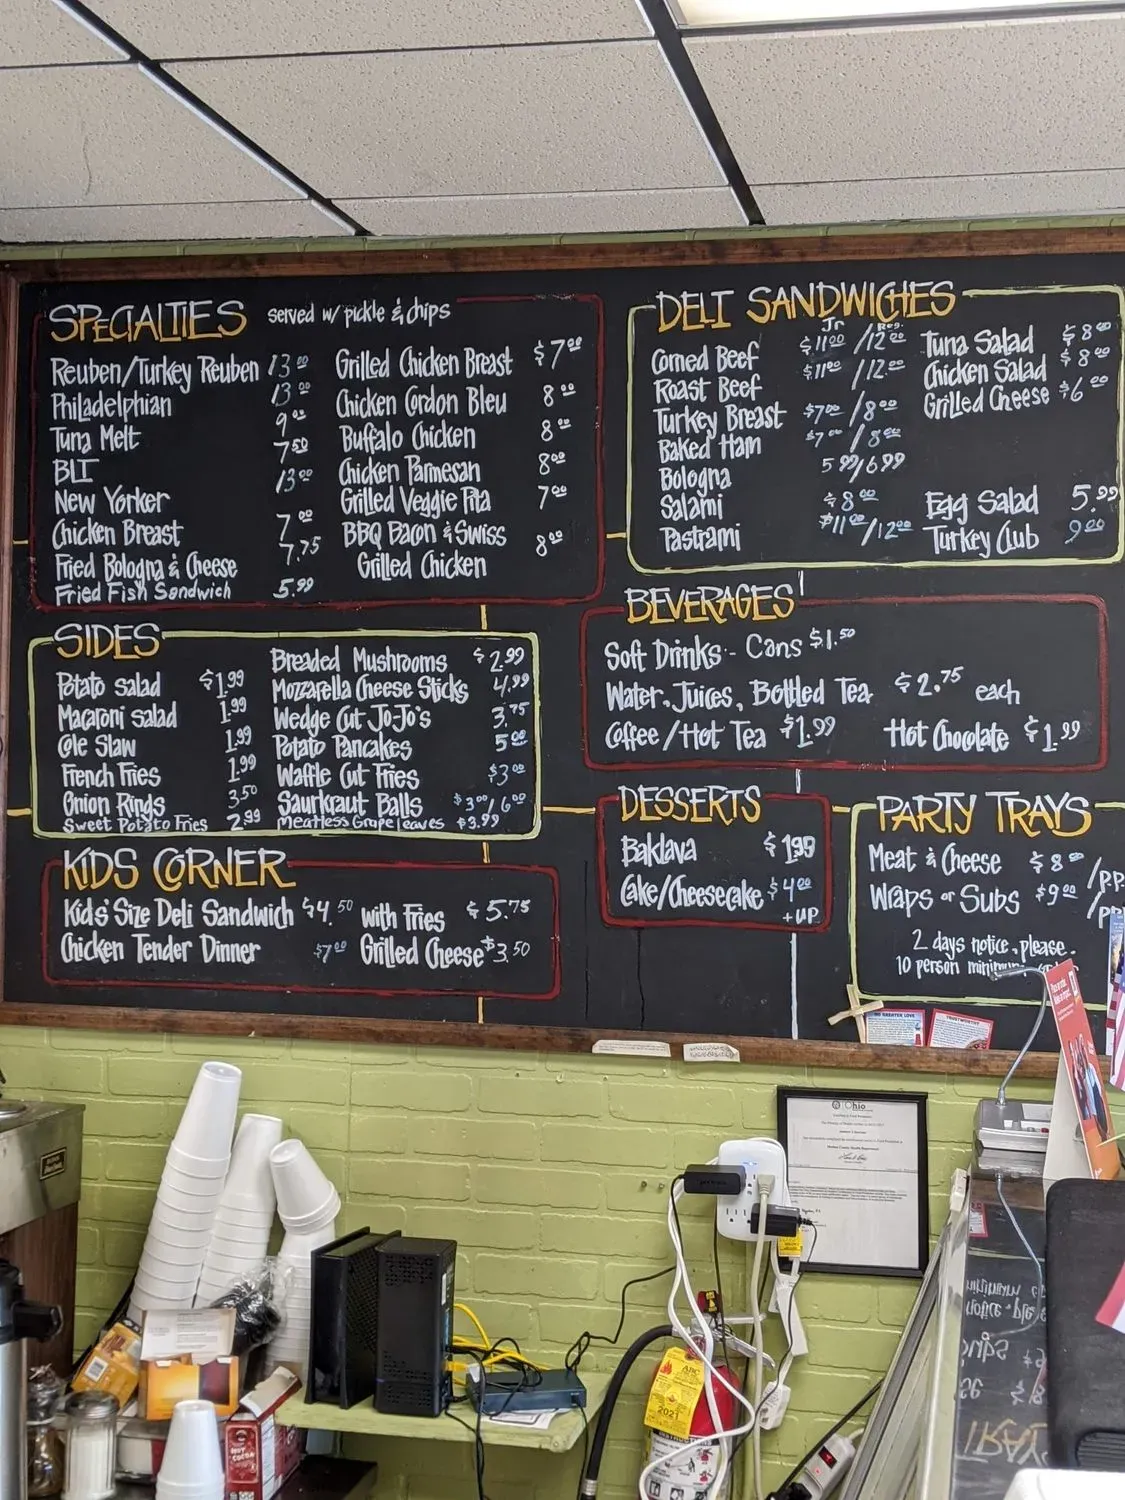 SPECIALTIES served w/ pickle & chips
Reuben/Turkey Reuben 13.00
Philadelphian 13.00
Tuna Melt 9.00
BLT 7.50
New Yorker 13.00
Chicken Breast 7.00
Fried Bologna & Cheese 7.75
Fried Fish Sandwich 5.99
Grilled Chicken Breast $7.00
Chicken Cordon Bleu 8.00
Buffalo Chicken 8.00
Chicken Parmesan 8.00
Grilled Veggie Pita 7.00
BBQ Bacon & Swiss
Grilled Chicken 8.00
DELI SANDWICHES
Jr Reg.
Corned Beef $11.00/12.00
Roast Beef $11.00/12.00
Turkey Breast $7.00/8.00
Baked Ham $7.00/8.00
Bologna 5.99/6.99
Salami $8.00
Pastrami $11.00/12.00
Tuna Salad $8.00
Chicken Salad $8.00
Grilled Cheese $6.00
Egg Salad 5.99
Turkey Club 9.00
SIDES
Potato Salad $1.99
Macaroni Salad 1.99
Cole Slaw 1.99
French Fries 1.99
Onion Rings 3.50
Sweet Potato Fries 2.99
Breaded Mushrooms $2.99
Mozzarella Cheese Sticks 4.99
Wedge Cut Jo-Jo's 3.75
Potato Pancakes 5.00
Waffle Cut Fries $3.00
Saurkraut Balls $3.00/6.00
Meatless Grape leaves $3.99
BEVERAGES
Soft Drinks - Cans $1.50
Water, Juices, Bottled Tea $2.75 each
Coffee/Hot Tea $1.99 Hot Chocolate $1.99
KIDS CORNER
Kids' Size Deli Sandwich $4.50 with Fries $5.75
Chicken Tender Dinner $7.00 Grilled Cheese $3.50
DESSERTS
Baklava $1.99
Cake/Cheesecake $4.00
+ UP
PARTY TRAYS
Meat & Cheese $8.00/PP
Wraps or Subs $9.00/PP
2 days notice, please.
10 person minimum
NO GREATER LOVE
TRUSTWORTHY
Ohio
2021
HOT COCOA